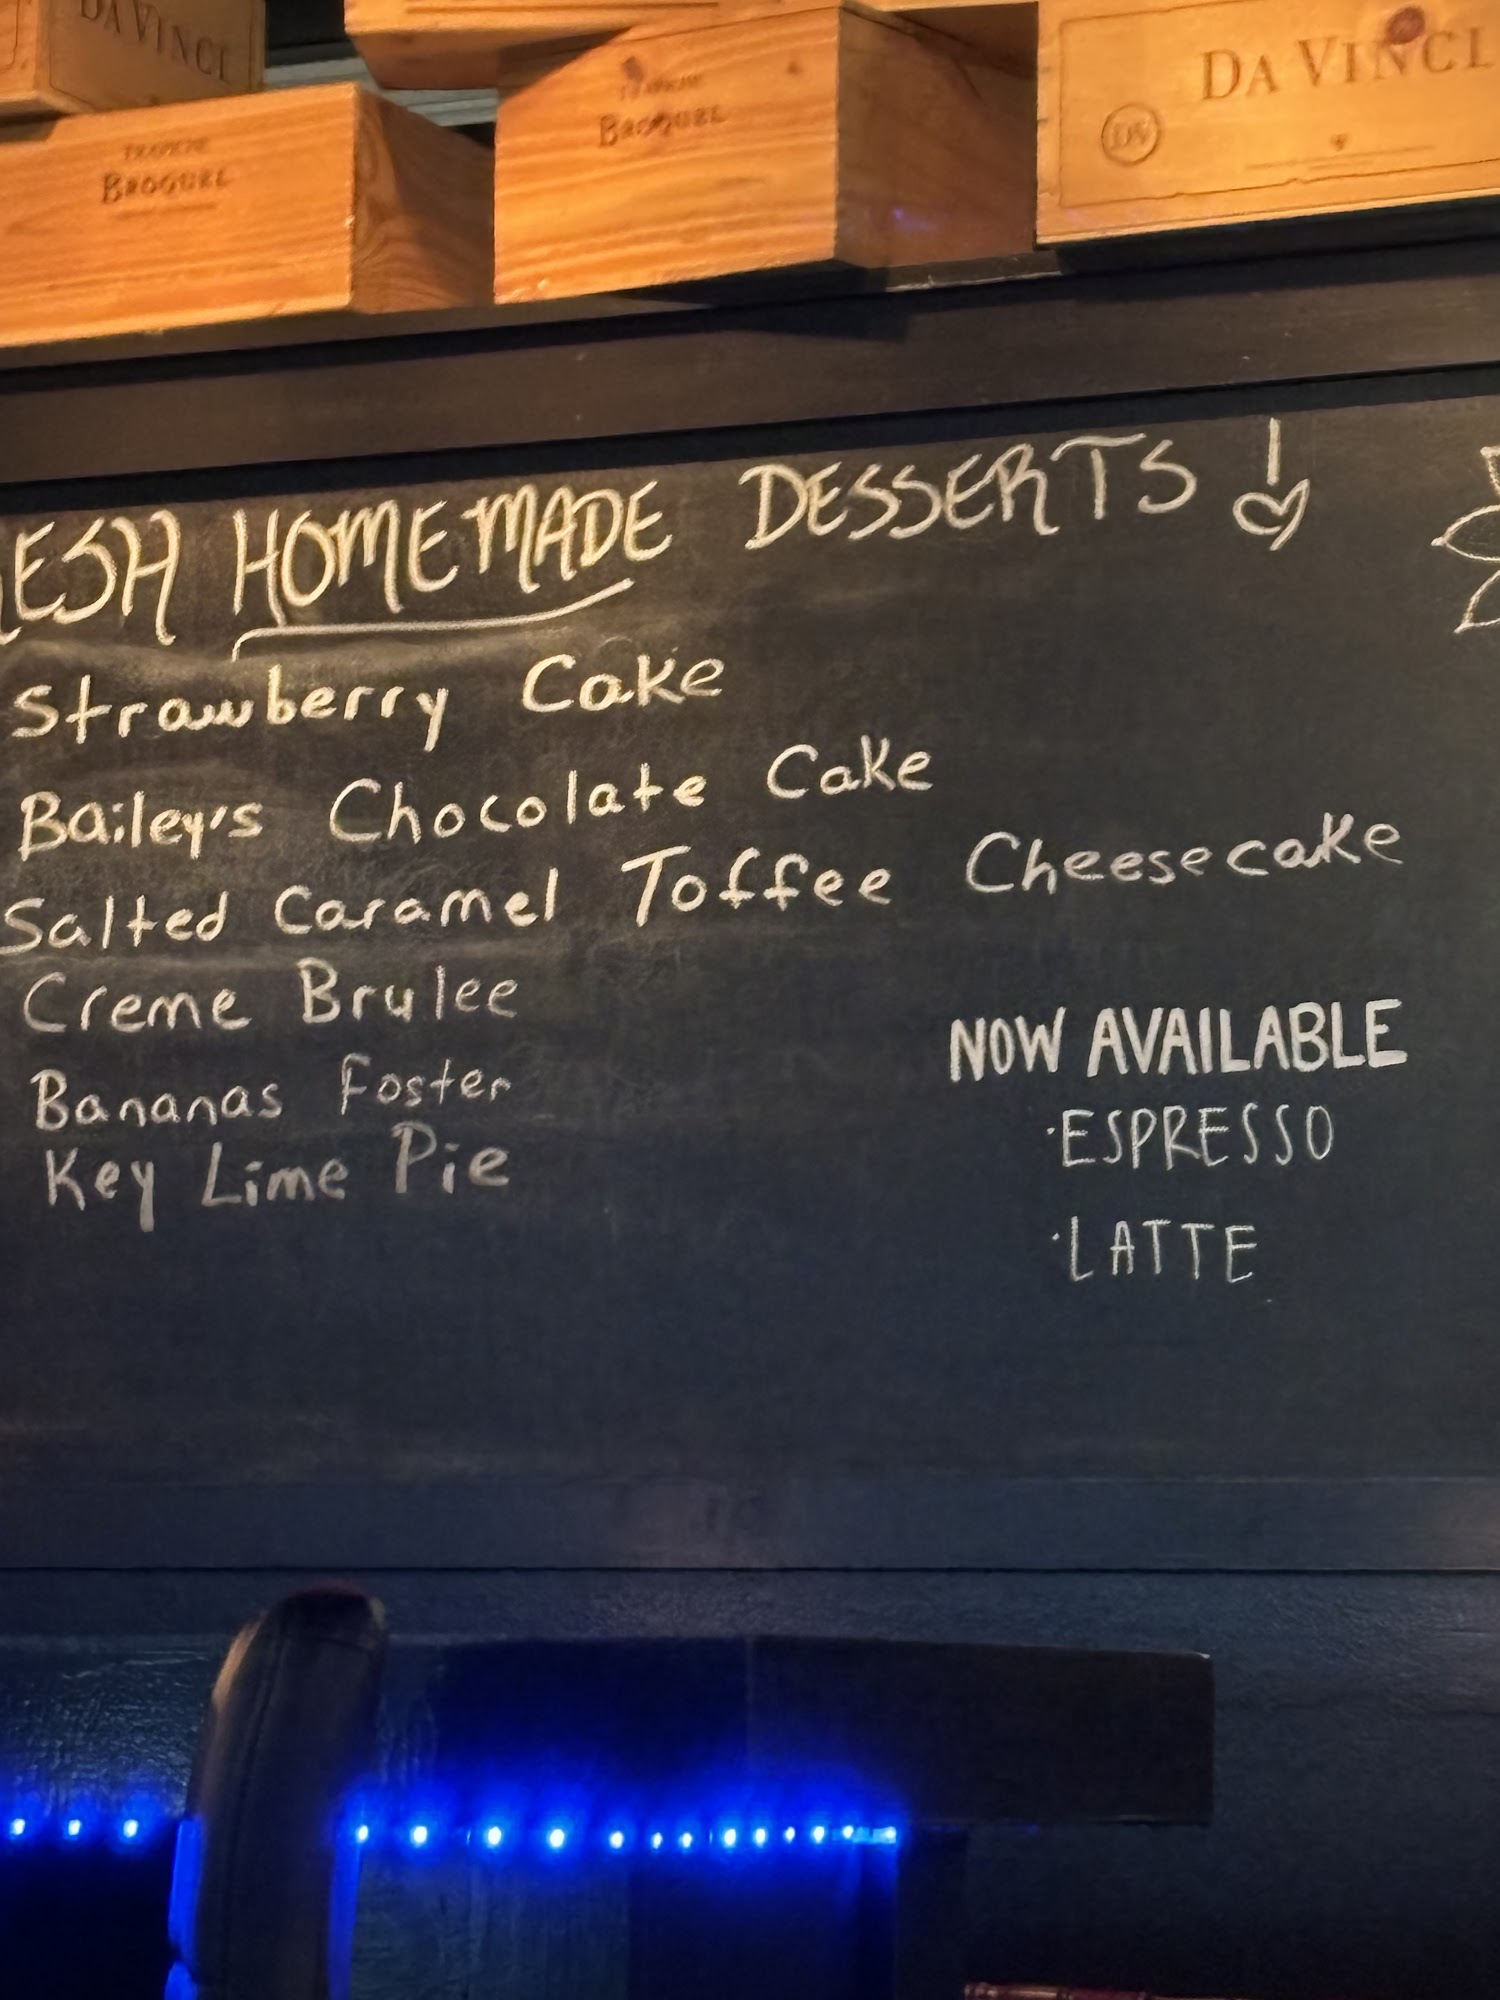 DA VINCI
TRAPICHE
BROQUEL
TRAPICHE
BROQUEL
DA VINCI
DV
ESH HOMEMADE DESSERTS!
Strawberry Cake
Bailey's Chocolate Cake
Salted Caramel Toffee Cheesecake
Creme Brulee
Bananas Foster
Key Lime Pie
NOW AVAILABLE
·ESPRESSO
·LATTE